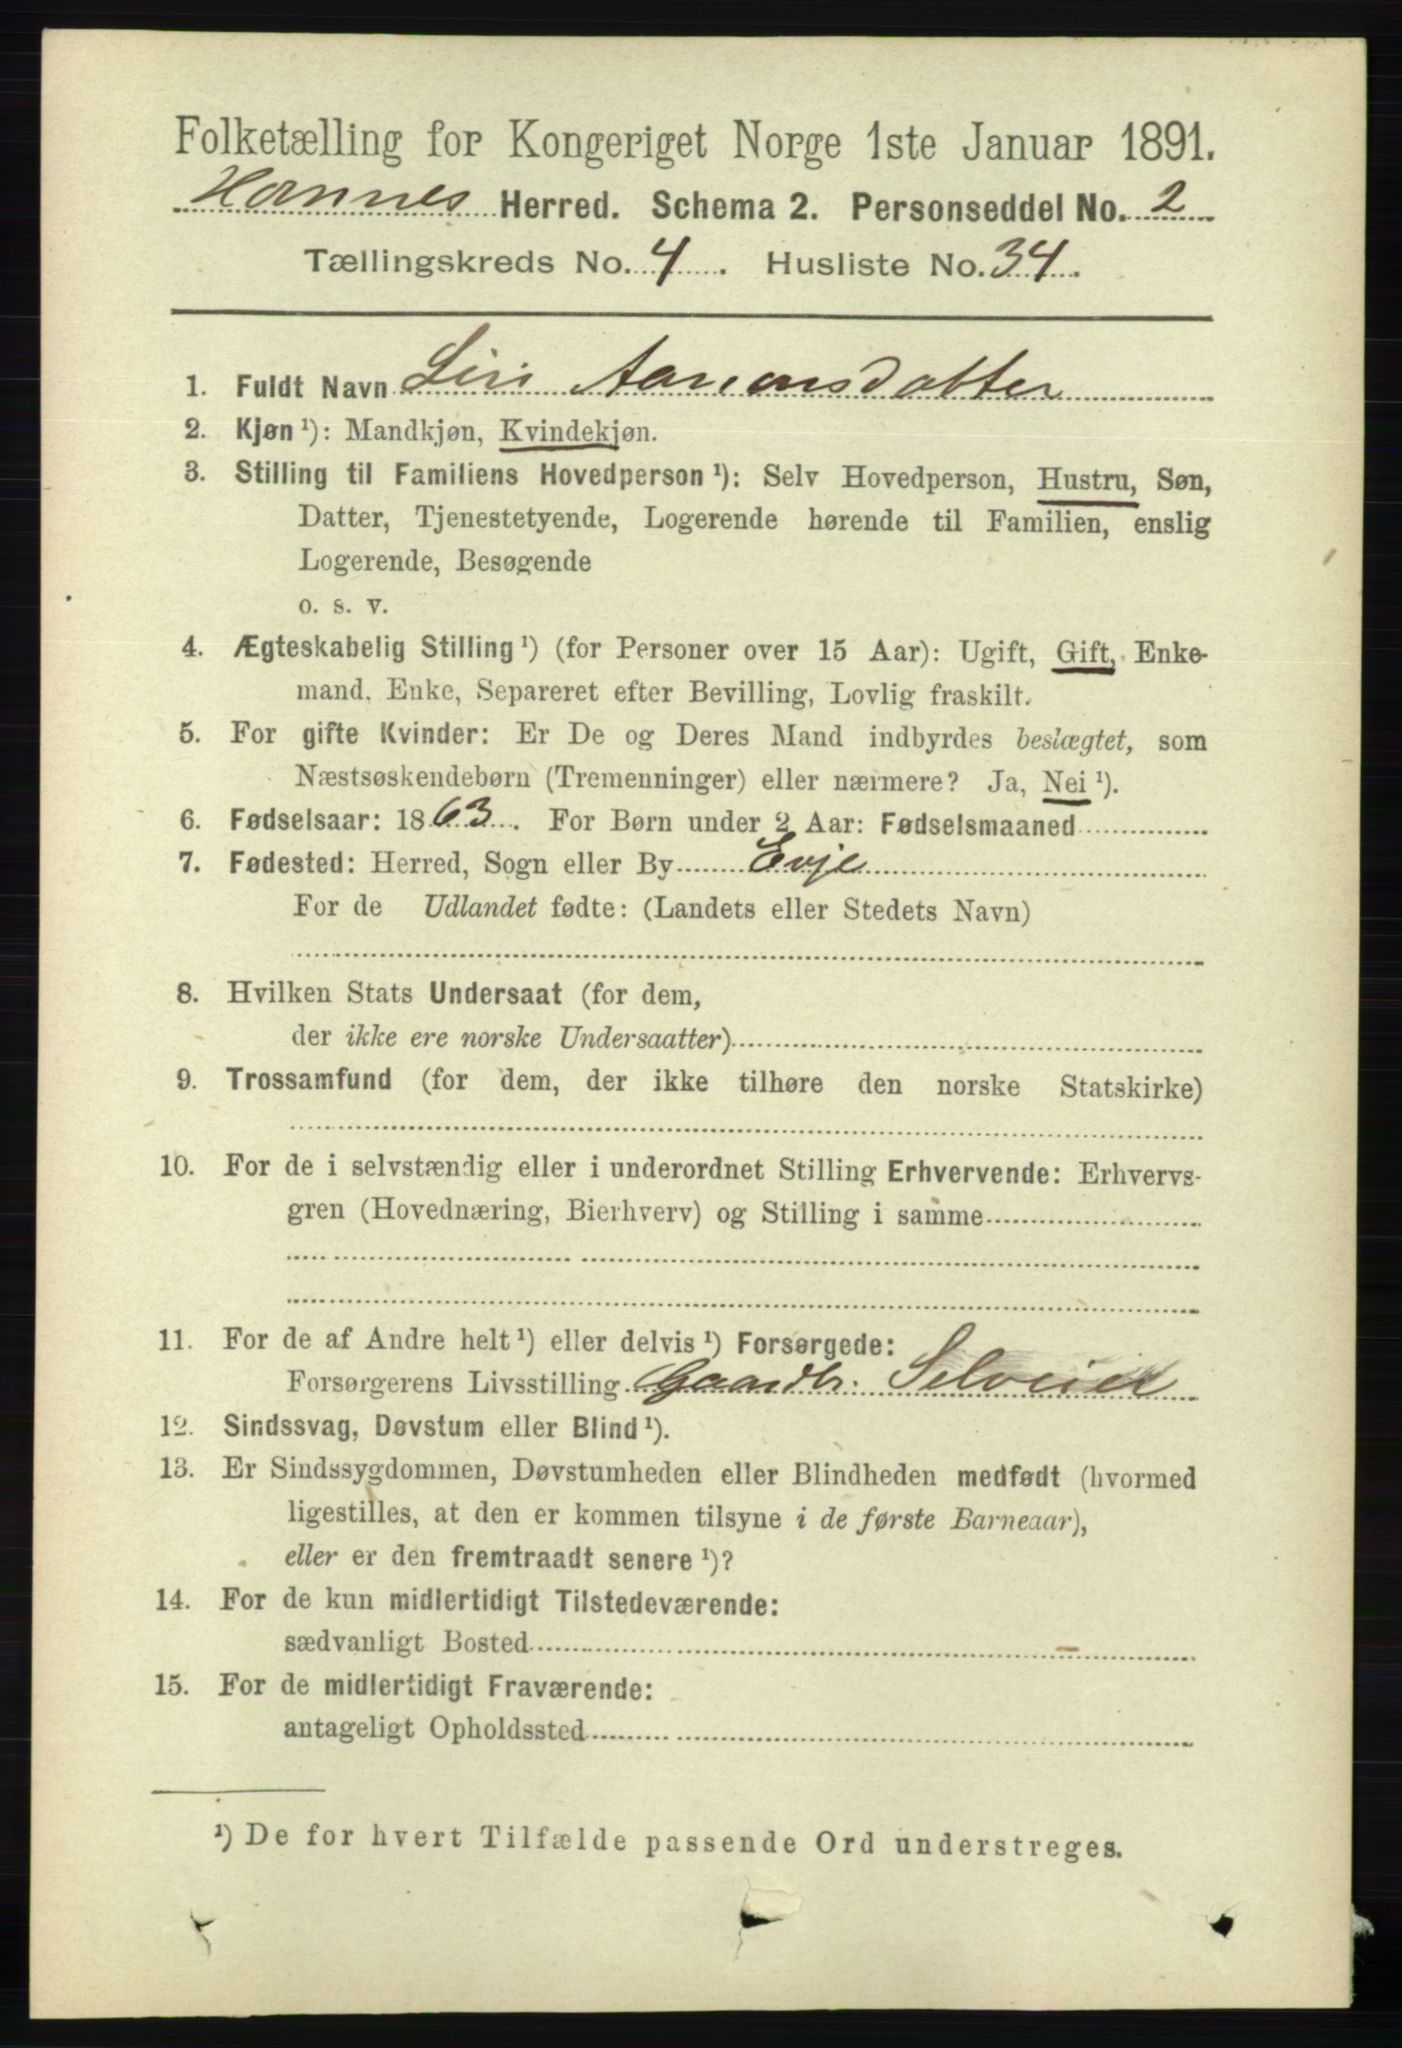 Folketælling for Kongeriget Norge 1ste Januar 1891.
Hornnes Herred. Schema 2. Personseddel No. 2
Tællingskreds No. 4. Husliste No. 34.
1. Fuldt Navn Siri Aanonsdatter
2. Kjøn ¹): Mandkjøn, Kvindekjøn.
3. Stilling til Familiens Hovedperson ¹): Selv Hovedperson, Hustru, Søn,
Datter, Tjenestetyende, Logerende hørende til Familien, enslig
Logerende, Besøgende
o. s. v.
4. Ægteskabelig Stilling ¹) (for Personer over 15 Aar): Ugift, Gift, Enke-
mand, Enke, Separeret efter Bevilling, Lovlig fraskilt.
5. For gifte Kvinder: Er De og Deres Mand indbyrdes beslægtet, som
Næstsøskendebørn (Tremenninger) eller nærmere? Ja, Nei ¹).
6. Fødselsaar: 1863. For Børn under 2 Aar: Fødselsmaaned
7. Fødested: Herred, Sogn eller By Evje
For de Udlandet fødte: (Landets eller Stedets Navn)
8. Hvilken Stats Undersaat (for dem,
der ikke ere norske Undersaatter)
9. Trossamfund (for dem, der ikke tilhøre den norske Statskirke)
10. For de i selvstændig eller i underordnet Stilling Erhvervende: Erhvervs-
gren (Hovednæring, Bierhverv) og Stilling i samme
11. For de af Andre helt ¹) eller delvis ¹) Forsørgede:
Forsørgerens Livsstilling Gaardbr. Selveier
12. Sindssvag, Døvstum eller Blind ¹).
13. Er Sindssygdommen, Døvstumheden eller Blindheden medfødt (hvormed
ligestilles, at den er kommen tilsyne i de første Barneaar),
eller er den fremtraadt senere ¹)?
14. For de kun midlertidigt Tilstedeværende:
sædvanligt Bosted
15. For de midlertidigt Fraværende:
antageligt Opholdssted
¹) De for hvert Tilfælde passende Ord understreges.